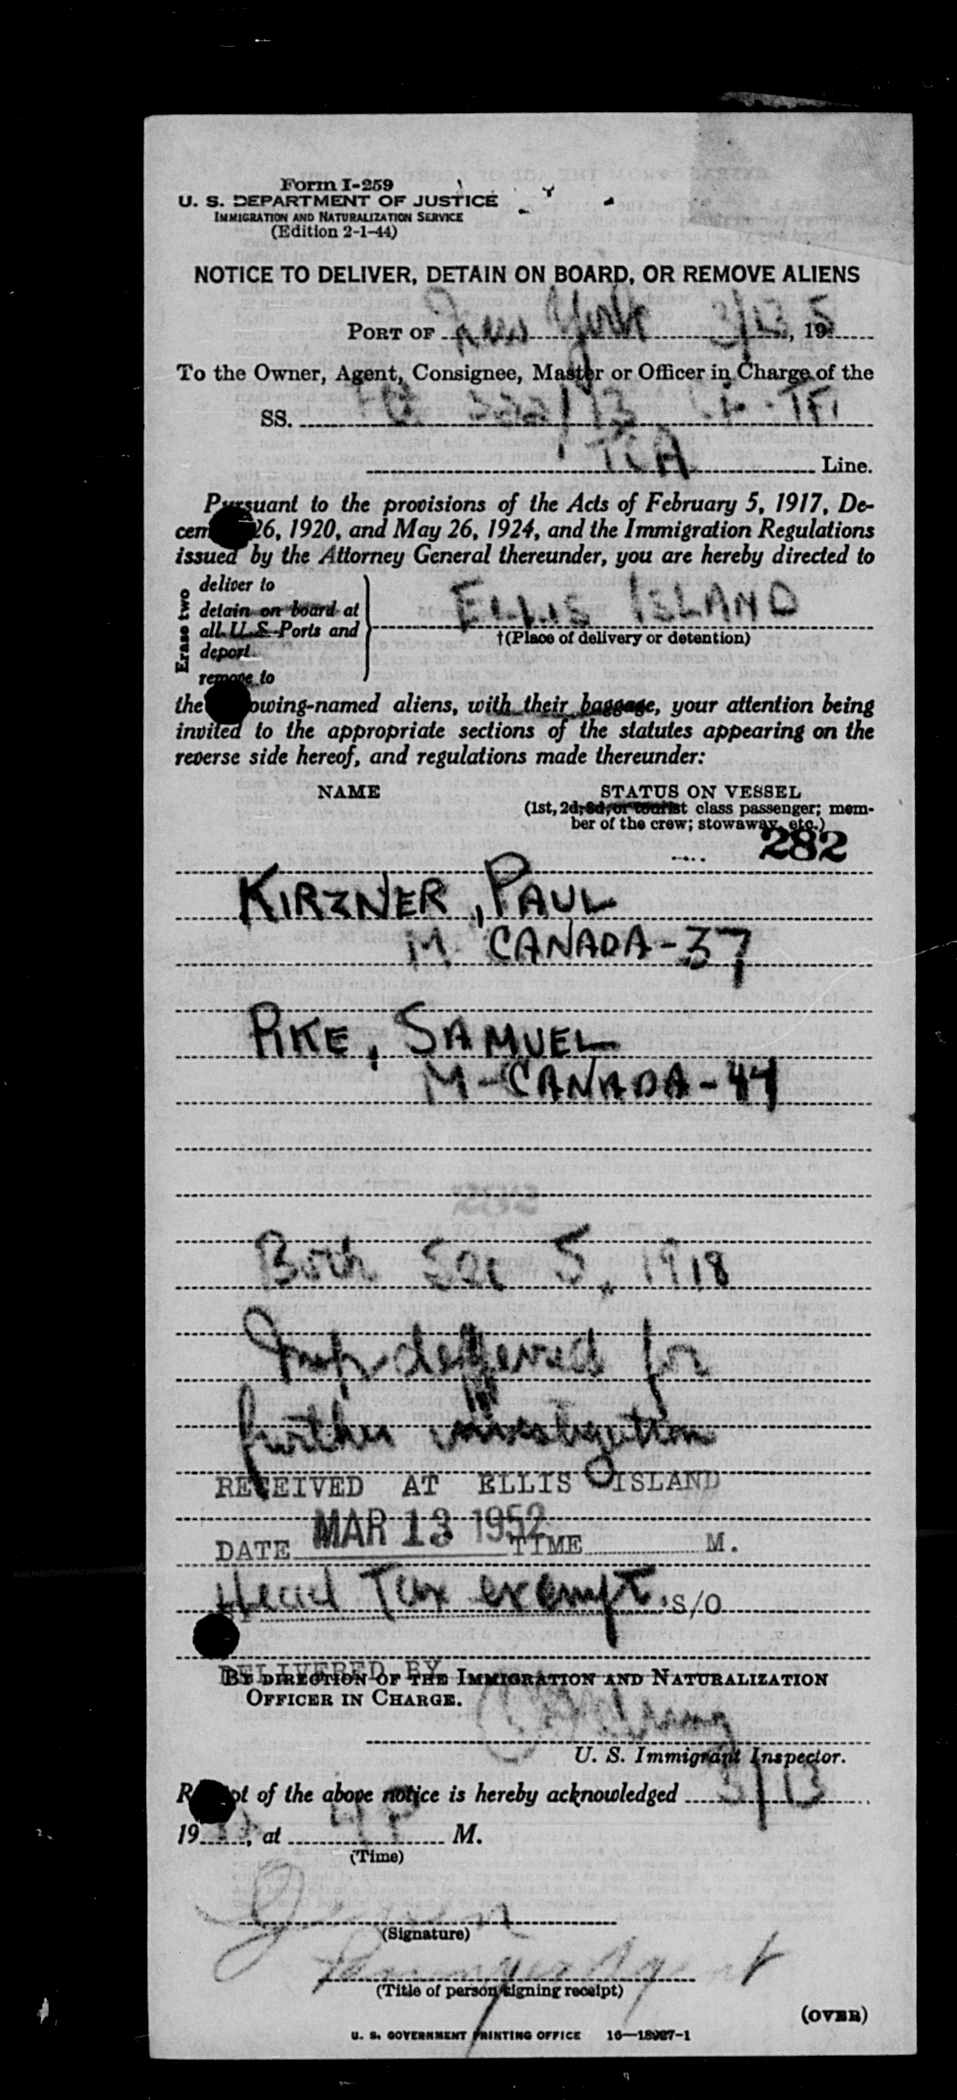 Form I-259
U. S. DEPARTMENT OF JUSTICE
IMMIGRATION AND NATURALIZATION SERVICE
(Edition 2-1-44)
NOTICE TO DELIVER, DETAIN ON BOARD, OR REMOVE ALIENS
PORT OF New York 3/13, 195
To the Owner, Agent, Consignee, Master or Officer in Charge of the
SS.
TCA Line.
Pursuant to the provisions of the Acts of February 5, 1917, De-
cem 26, 1920, and May 26, 1924, and the Immigration Regulations
issued by the Attorney General thereunder, you are hereby directed to
Erase two
deliver to
detain on board at
all U. S. Ports and
deport
remove to
ELLIS ISLAND
†(Place of delivery or detention)
the owing-named aliens, with their baggage, your attention being
invited to the appropriate sections of the statutes appearing on the
reverse side hereof, and regulations made thereunder:
NAME STATUS ON VESSEL
(1st, 2d, 3d, or tourist class passenger; mem-
ber of the crew; stowaway, etc.)
282
KIRZNER, PAUL
M. CANADA-37
PIKE, SAMUEL
M-CANADA-44
Both Sec 5, 1918
Insp deferred for
further investigation
RECEIVED AT ELLIS ISLAND
DATE MAR 13 1952 TIME M.
Head Tax exempt. S/O
DELIVERED BY
BY DIRECTION OF THE IMMIGRATION AND NATURALIZATION
OFFICER IN CHARGE.
U. S. Immigrant Inspector.
R pt of the above notice is hereby acknowledged 3/13
19 , at 4 P M.
(Time)
(Signature)
Passenger Agent
(Title of person signing receipt)
(OVER)
U. S. GOVERNMENT PRINTING OFFICE 16—18927-1